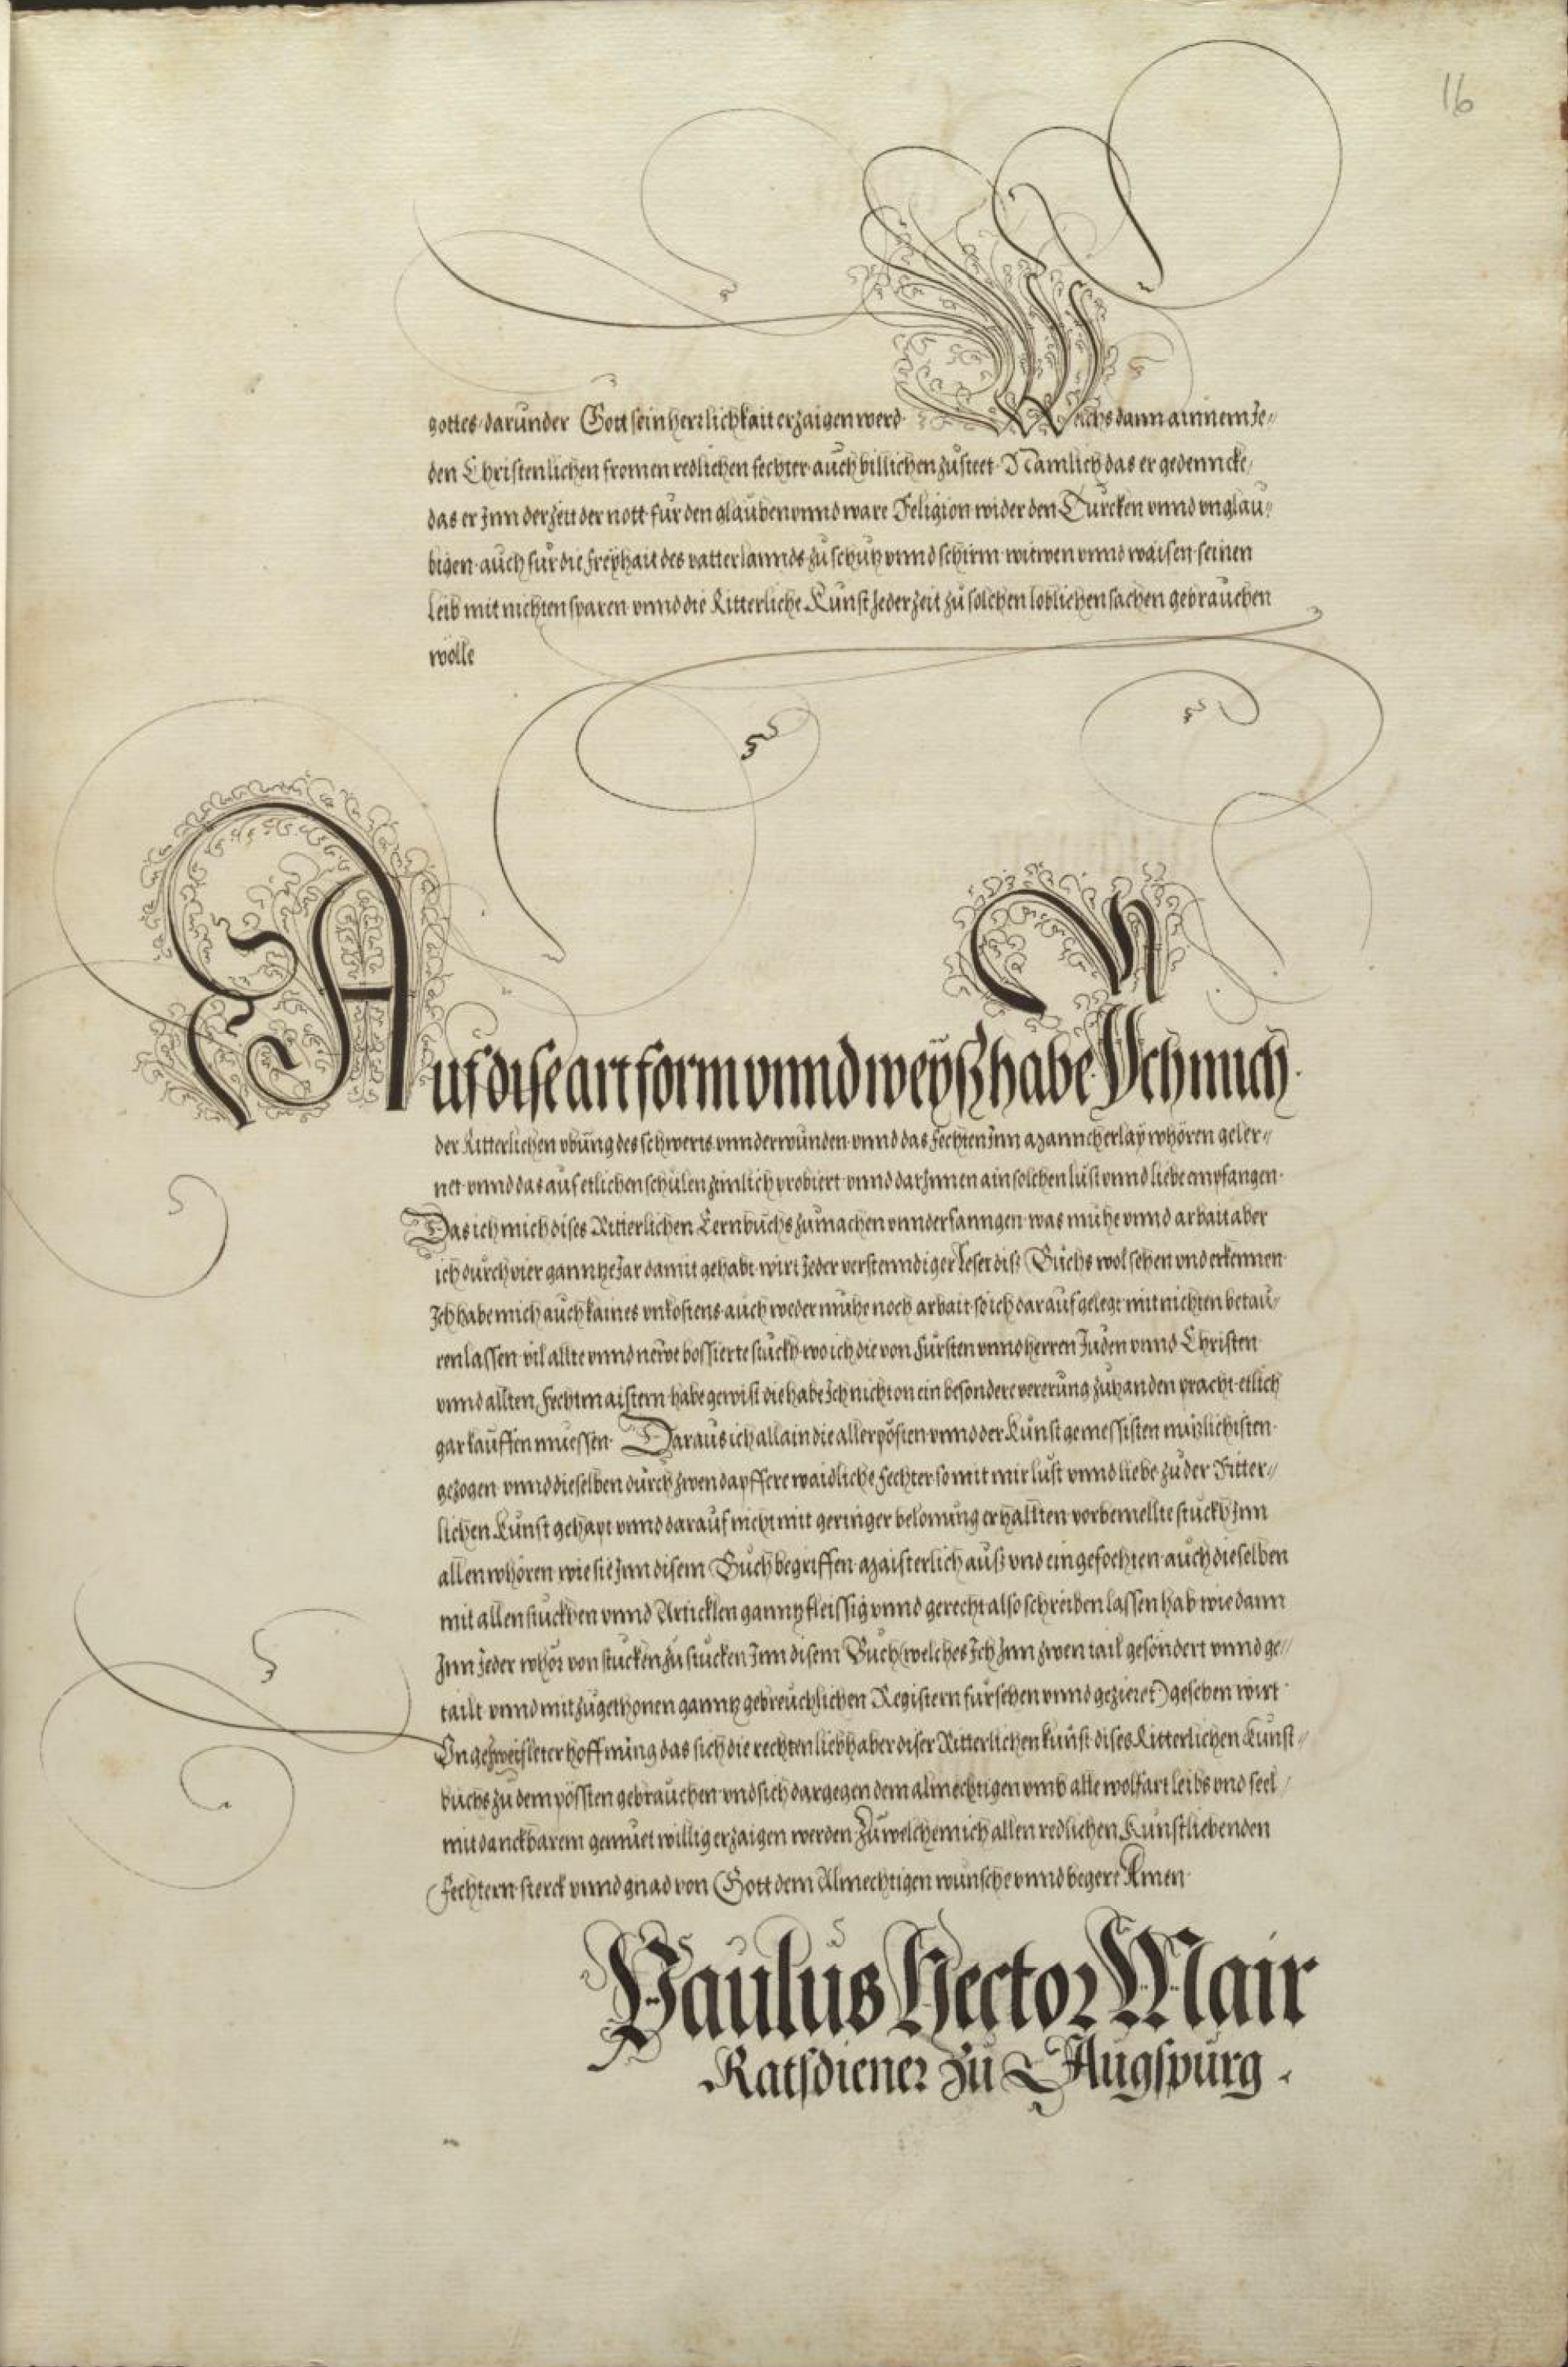 16
gottes darunder Gott sein herrlichkait erzaigen werd. Welchs dann ainnem Je-
den Christenlichen fromen redlichen fechter auch billichen zusteet. Namlich das er gedenncke
das er Inn der zeit der nott für den glauben vnnd ware Religion wider den Türcken vnnd vnglau-
bigen auch für die freyhait des vatterlannds zu schutz vnnd schirm witwen vnnd waisen seinen
leib mit nichten sparen vnnd die Ritterliche Kunst Jeder zeit zu solchen loblichen sachen gebrauchen
wölle
Auf dise art form vnnd weyß habe Ich mich
der Ritterlichen vbung des schwerts vnnderwunden vnnd das fechten Inn mancherlay whören geler-
net vnnd das auf etlichen schulen zimlich probiert vnnd dar Innen ain solchen lust vnnd liebe empfangen
Das ich mich dises Ritterlichen Lernbuchs zumachen vnnderfanngen was mühe vnnd arbait aber
ich durch vier ganntze Jar damit gehabt wirt Jeder verstenndiger Leser dis Buchs wol sehen vnd erkennen
Ich habe mich auch kaines vnkostens auch weder mühe noch arbait so ich darauf gelegt mit nichten betau-
ren lassen vil allte vnnd newe bossierte stuckh wo ich die von Fürsten vnnd herren Juden vnnd Christen
vnnd allten Fechtmaistern habe gewist die habe Ich nicht on ein besondere vererung zuhanden pracht etlich
gar kauffen muessen. Daraus ich allain die aller pösten vnnd der Kunst gemessisten nutzlichisten
gezogen vnnd dieselben durch zwen dapffere waidliche fechter so mit mir lust vnnd liebe zu der Ritter-
lichen Kunst gehapt vnnd darauf nicht mit geringer belonung erhallten vorbemellte stuckh Inn
allen whören wie sie Inn disem Buch begriffen maisterlich auß vnd ein gefochten auch dieselben
mit allen stuckhen vnnd Articklen ganntz fleissig vnnd gerecht also schreiben lassen hab wie dann
Inn Jeder whör von stucken zu stucken Inn disem Buch (welches Ich Inn zwen tail gesöndert vnnd ge-
tailt vnnd mit zugethonen ganntz gebreuchlichen Registern fürsehen vnnd gezieret) gesehen wirt
Vngezweifleter hoffnung das sich die rechten liebhaber diser Ritterlichen kunst dises Ritterlichen Kunst-
buchs zu dem pössten gebrauchen vnd sich dargegen dem almechtigen vmb alle wolfart leibs vnd seel
mit danckbarem gemuet willig erzaigen werden Zu welchem ich allen redlichen Kunstliebenden
Fechtern sterck vnnd gnad von Gott dem Almechtigen wünsche vnnd begere Amen
Paulus Hector Mair
Ratsdiener zu Augspurg.